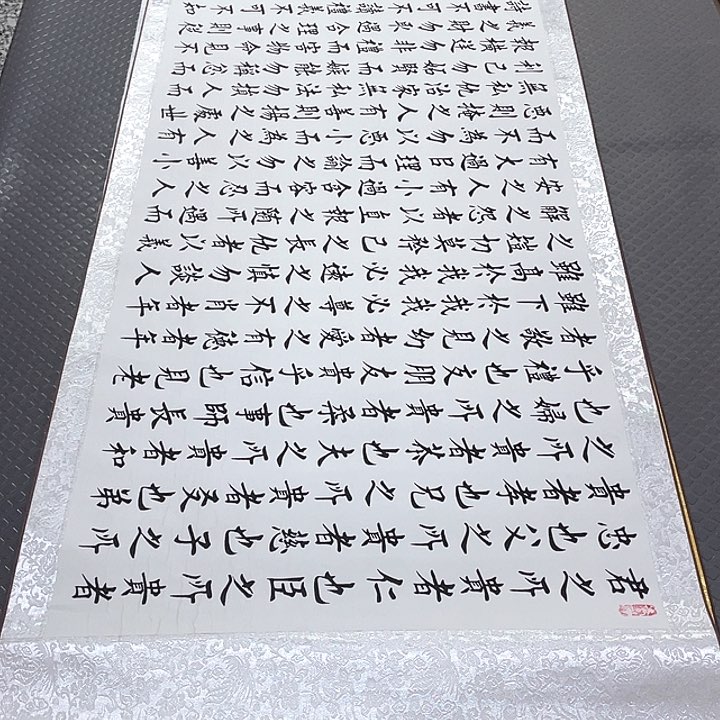 君之所貴者仁也臣之所貴者
忠也父之所貴者慈也子之所
貴者孝也兄之所貴者友也弟
之所貴者恭也夫之所貴者和
也婦之所貴者柔也事師長貴
乎禮也交朋友貴乎信也見老
者敬之見幼者愛之有德者年
雖下於我我必尊之不肖者年
雖高於我我必遠之慎勿談人
之短切莫矜己之長仇者以義
解之怨者以直報之隨所遇而
安之人有小過含容而忍之人
有大過以理而諭之勿以善小
而不為勿以惡小而為之人有
惡則掩之人有善則揚之處世
無私仇治家無私法勿損人而
利己勿妒賢而嫉能勿稱忿而
報橫逆勿非禮而害物命見不
義之財勿取遇合理之事則從
詩書不可不讀禮義不可不知